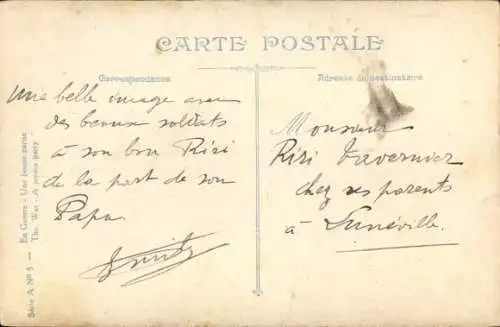 CARTE POSTALE
Correspondance
Adresse du destinataire
Une belle image avec
des beaux soldats
à son bon Riri
de la part de son
Papa
Monsieur
Riri Tavernier
chez ses parents
à Lunéville.
Série A Nº 5 — En Guerre - Une joyeuse partie
The War - A joyous party